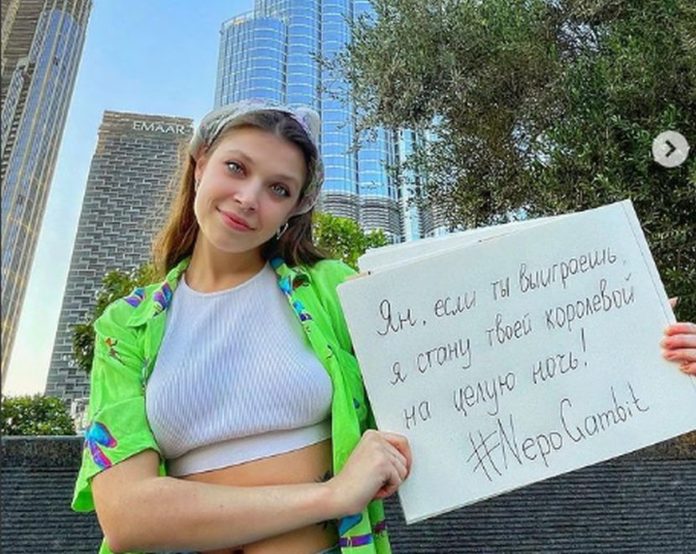 EMAAR
Ян, если ты выиграешь,
я стану твоей королевой
на целую ночь!
#NepoGambit